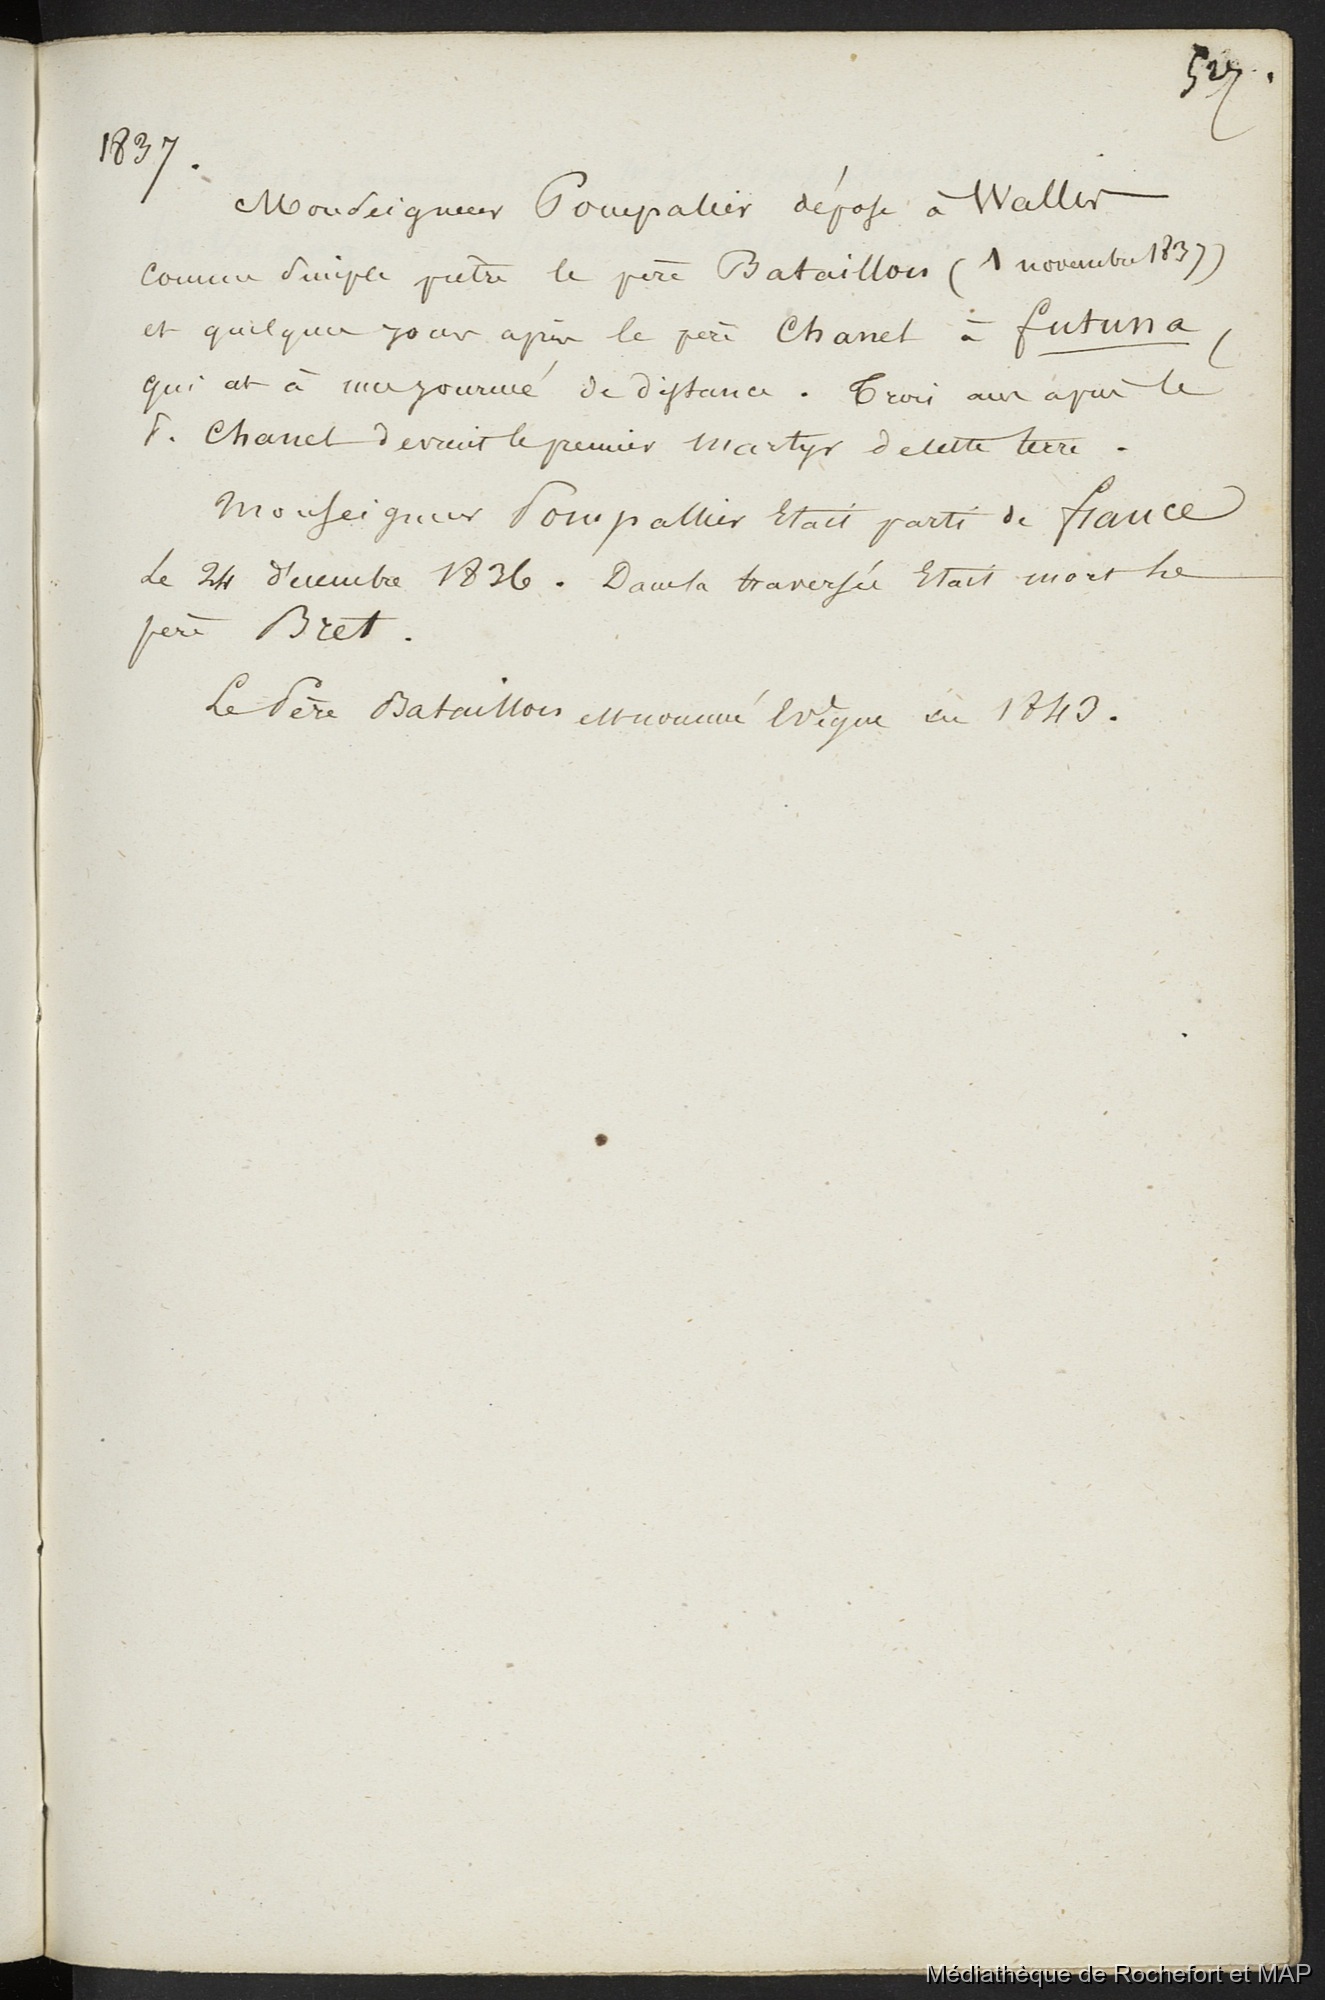 527.
1837.
Monseigneur Pompallier dépose à Wallis
comme simple prêtre le père Bataillon (1 novembre 1837)
et quelques jours après le père Chanel à futuna,
qui est à une journée de distance. Trois ans après le
P. Chanel devint le premier martyr de cette terre.
Monseigneur Pompallier Etait parti de france
Le 24 décembre 1836. Dans la traversée Etait mort Le
père Bret.
Le Père Bataillon est nommé Evêque en 1843.
Médiathèque de Rochefort et MAP